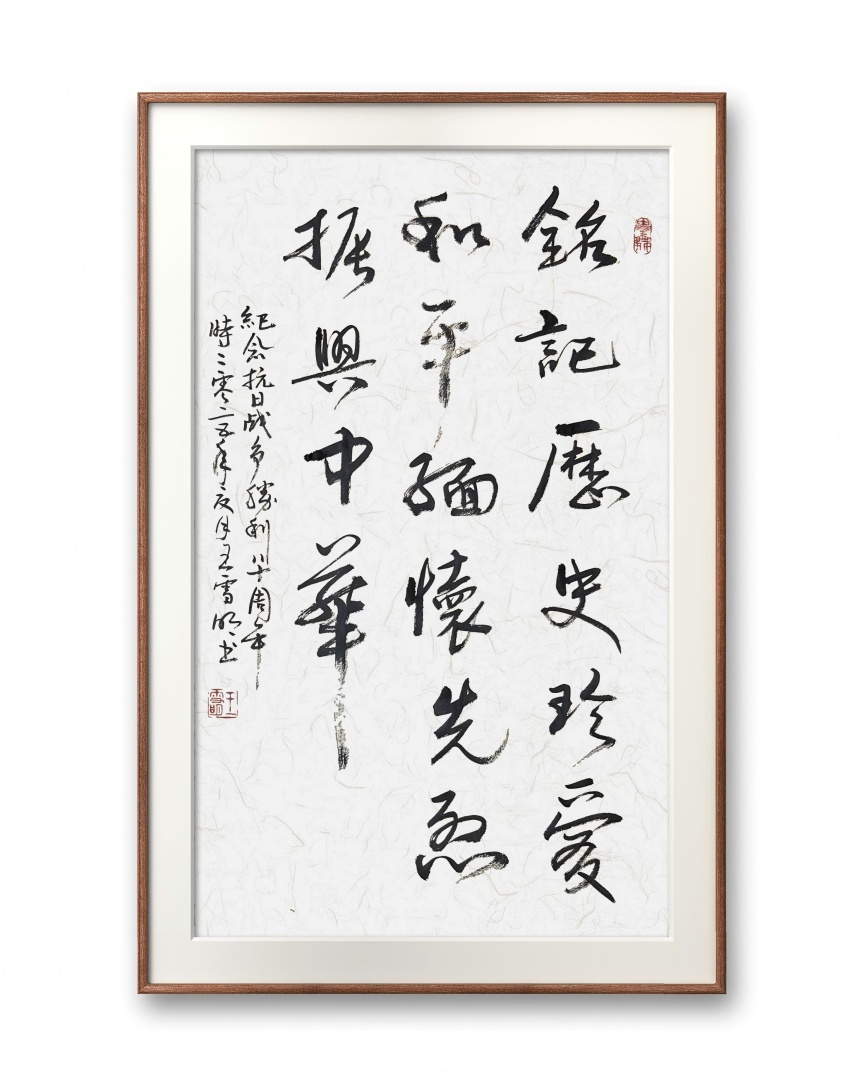 銘記歷史珍愛
和平緬懷先烈
振興中華
紀念抗日战争勝利八十周年
時二零二五年夏月王雪明书
王雪明